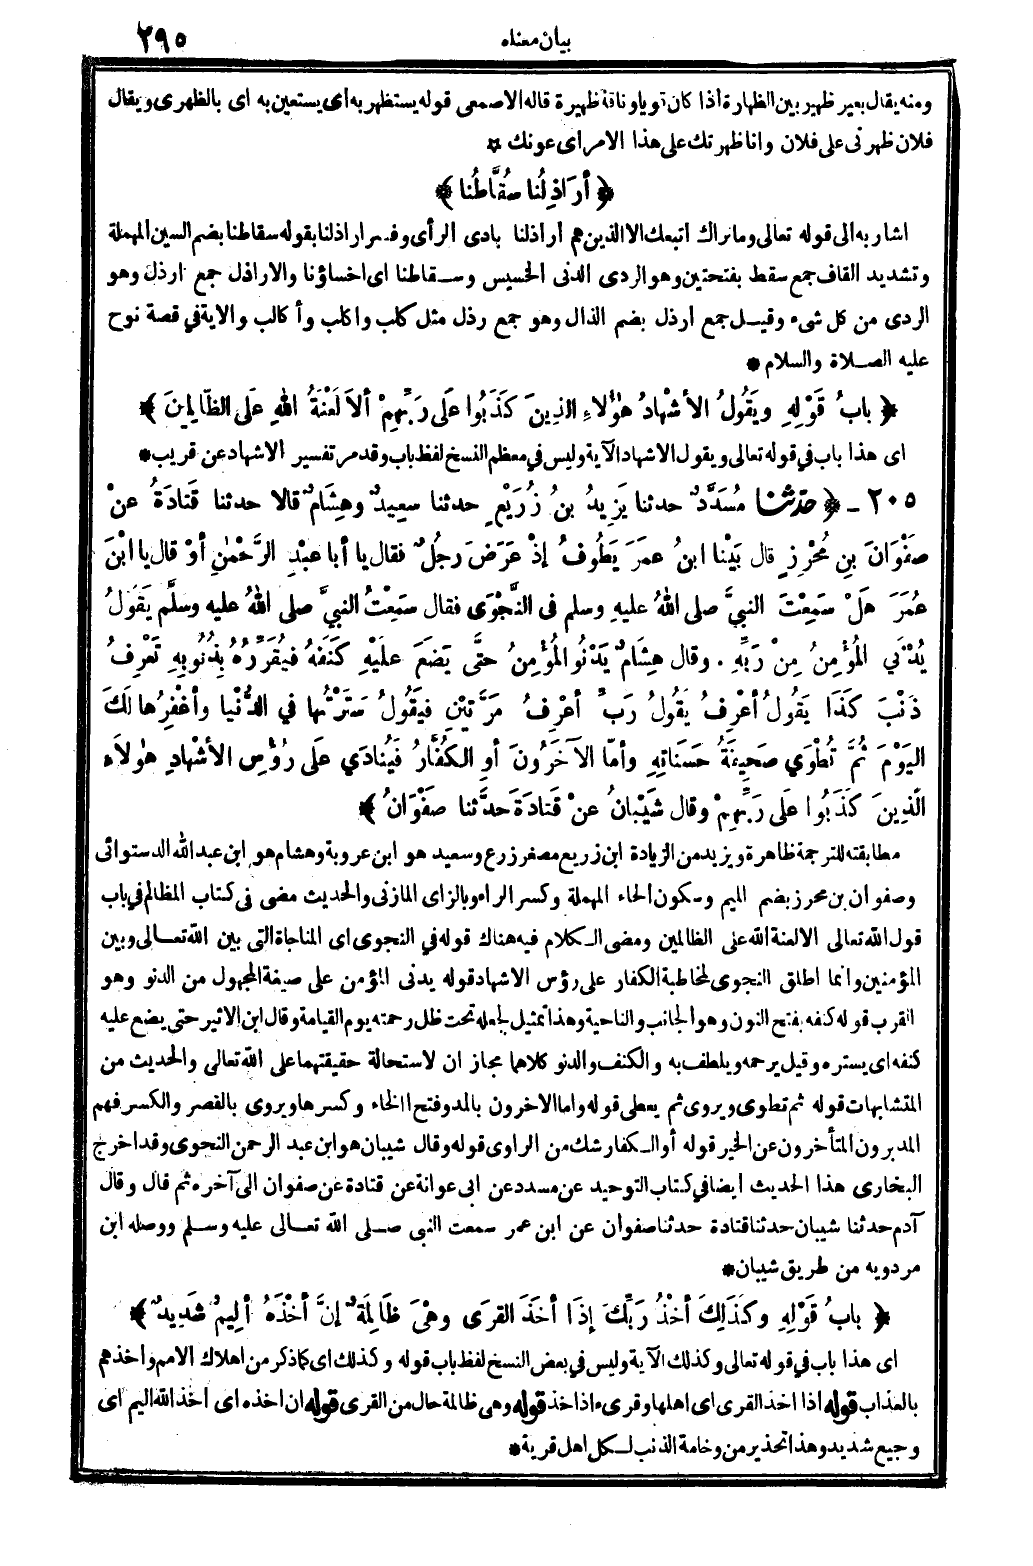 بيان معناه
٢٩٥
ومنه يقال بعير ظهير بين الظهارة أذا كان قويا وناقة ظهيرة قاله الاصمعى قوله يستظهر به أى يستعين به اى بالظهرى ويقال
فلان ظهرتى على فلان وانا ظهرتك على هذا الامر اى عونك *
﴿ أرَاذِلُنا سُقَّاطُنا ﴾
اشار به الى قوله تعالى وما نراك اتبعك الا الذين هم أراذلنا بادى الرأى وفسر اراذلنا بقوله سقاطنا بضم السين المهملة
وتشديد القاف جمع سقط بفتحتين وهو الردى الدنى الخسيس وسقاطنا اى اخساؤنا والاراذل جمع ارذل وهو
الردى من كل شىء وقيل جمع ارذل بضم الذال وهو جمع رذل مثل كلب واكلب وأكالب والاية في قصة نوح
عليه الصلاة والسلام *
﴿ بابُ قَوْلِهِ ويَقُولُ الأشْهادُ هٰؤُلاءِ الذِينَ كَذَبُوا عَلَى رَبِّهِمْ ألاَ لَعْنَةُ اللهِ عَلَى الظّالِمِينَ ﴾
اى هذا باب في قوله تعالى ويقول الاشهاد الآية وليس في معظم النسخ لفظ باب وقد مر تفسير الاشهاد عن قريب *
٢٠٥ - ﴿ حدّثنا مُسَدَّدٌ حدثنا يَزِيدُ بنُ زُرَيْعٍ حدثنا سعِيدٌ وهِشَامٌ قالا حدثنا قَتَادَةُ عنْ
صَفْوَانَ بنِ مُحْرِزٍ قال بَيْنا ابنُ عمَرَ يَطُوفُ إذْ عَرَضَ رجُلٌ فقال يا أبا عبْدِ الرَّحْمٰنِ أوْ قال يا ابْنَ
عُمَرَ هَلْ سَمِعْتَ النبيَّ صلى اللهُ عليهِ وسلم فى النَّجْوَى فقال سَمِعْتُ النبيَّ صلى اللهُ عليه وسلَّم يَقولُ
يُدْنَي المُؤْمِنُ مِنْ رَبِّهِ . وقال هِشَامٌ يَدْنُو المُؤْمِنُ حتَّى يَضَعَ علَيْهِ كَنَفَهُ فيُقَرِّرُهُ بِذُنُوبِهِ تَعْرِفُ
ذَنْبَ كَذَا يَقُولُ أعْرِفُ يَقُولُ رَبِّ أعْرِفُ مَرَّتَيْنِ فيَقُولُ سَتَرْتُها في الدُّنْيا وأغْفِرُها لكَ
اليَوْمَ ثُمَّ تُطْوَي صَحِيفَةُ حَسَناتِهِ وأمّا الآخَرُونَ أوِ الكُفَّارُ فَيُنادَي عَلَى رُؤُسِ الأشْهادِ هٰؤلاَء
الّذِينَ كَذَبُوا عَلَى رَبِّهِمْ وقال شَيْبانُ عنْ قَتادَةَ حدَّثنا صفْوَانُ ﴾
مطابقته للترجمة ظاهرة ويزيد من الزيادة ابن زريع مصغر زرع وسعيد هو ابن عروبة وهشام هو ابن عبد الله الدستوائى
وصفوان بن محرز بضم الميم وسكون الحاء المهملة وكسر الراء وبالزاى المازنى والحديث مضى فى كتاب المظالم في باب
قول الله تعالى الا لعنة الله على الظالمين ومضى الكلام فيه هناك قوله في النجوى اى المناجاة التى بين الله تعالى وبين
المؤمنين وانما اطلق النجوى لمخاطبة الكفار على رؤس الاشهاد قوله يدنى المؤمن على صيغة المجهول من الدنو وهو
القرب قوله كنفه بفتح النون وهو الجانب والناحية وهذا تمثيل لجعله تحت ظل رحمته يوم القيامة وقال ابن الاثير حتى يضع عليه
كنفه اى يستره وقيل يرحمه ويلطف به والكنف والدنو كلاهما مجاز ان لاستحالة حقيقتهما على الله تعالى والحديث من
المتشابهات قوله ثم تطوى ويروى ثم يعطى قوله واما الاخرون بالمد وفتح الخاء وكسرها ويروى بالقصر والكسر فهم
المدبرون المتأخرون عن الخير قوله أو الكفار شك من الراوى قوله وقال شيبان هو ابن عبد الرحمن النحوى وقد اخرج
البخارى هذا الحديث ايضا في كتاب التوحيد عن مسدد عن ابى عوانة عن قتادة عن صفوان الى آخره ثم قال وقال
آدم حدثنا شيبان حدثنا قتادة حدثنا صفوان عن ابن عمر سمعت النبى صلى الله تعالى عليه وسلم ووصله ابن
مردويه من طريق شيبان *
﴿ بابُ قَوْلِهِ وكَذَلِكَ أخْذُ رَبِّكَ إذَا أخَذَ القرَى وهْىَ ظَالِمَةٌ إنَّ أخْذَهُ ألِيمٌ شَدِيدٌ ﴾
اى هذا باب في قوله تعالى وكذلك الآية وليس في بعض النسخ لفظ باب قوله وكذلك اى كما ذكر من اهلاك الامم واخذهم
بالعذاب قوله اذا اخذ القرى اى اهلها وقرىء اذ اخذ قوله وهى ظالمة حال من القرى قوله ان اخذه اى اخذ الله اليم اى
وجيع شديد وهذا تحذير من وخامة الذنب لكل اهل قرية *